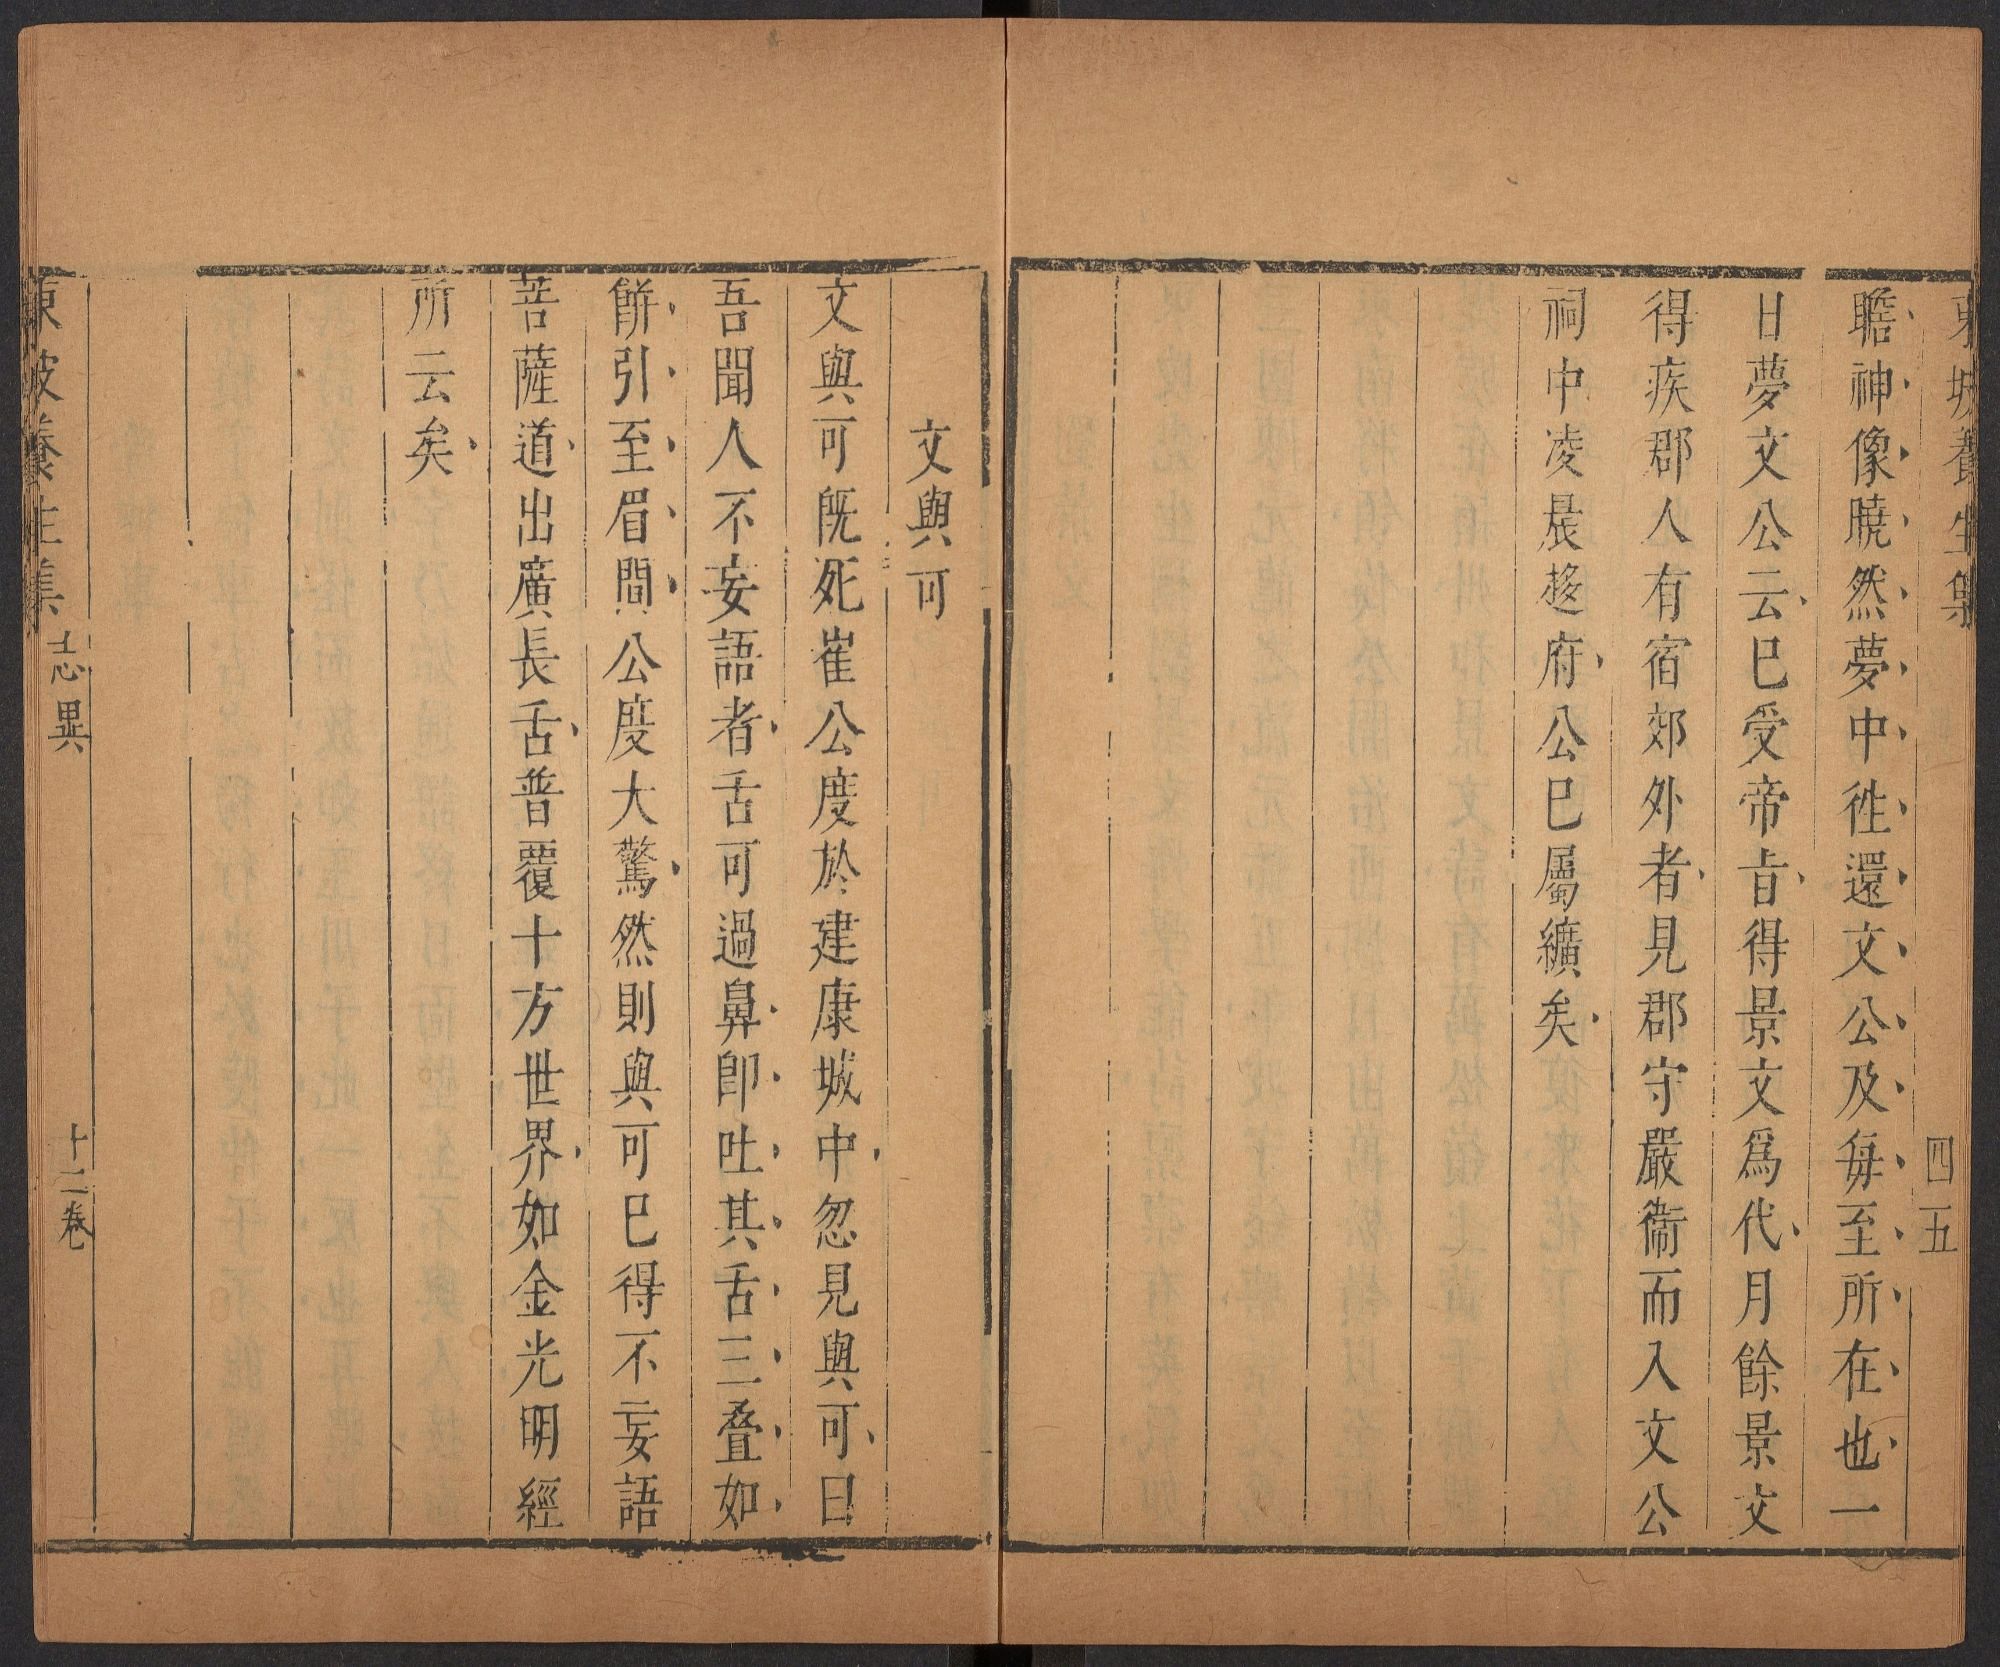 東坡養生集
四五
瞻神像曉然夢中徃還文公及毎至所在也一
日夢文公云巳受帝㫖得景文爲代月餘景文
得疾郡人有宿郊外者見郡守嚴衞而入文公
祠中凌晨趍府公巳屬纊矣
文與可
文與可旣死崔公度於建康城中忽見與可曰
吾聞人不妄語者舌可過鼻卽吐其舌三疊如
餅引至眉間公度大驚然則與可巳得不妄語
菩薩道出廣長舌普覆十方世界如金光明經
所云矣
東坡養生集
志異
十二卷